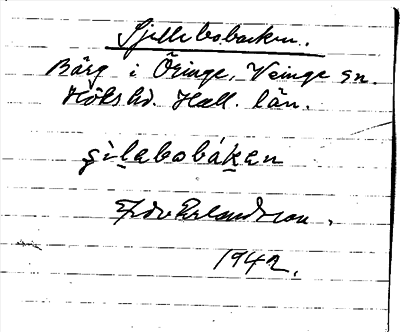 Sjillebobacken.
Bärg i Öringe, Veinge sn.
Höks hd. Hall. län.
s̨ìlabobákan
Edv. Erlandsson.
1942.